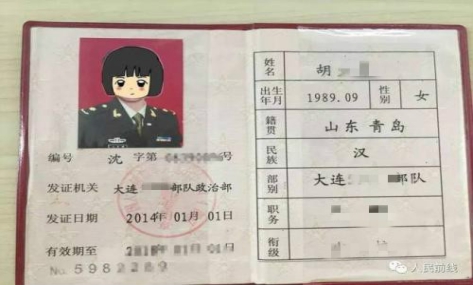 编号 沈 字第 号
发证机关 大连 部队政治部
发证日期 2014年 01月 01日
有效期至 年 01月 01日
No 5982289
姓名 胡
出生年月 1989.09 性别 女
籍贯 山东 青岛
民族 汉
部别 大连 部队
职务
衔级
人民前线